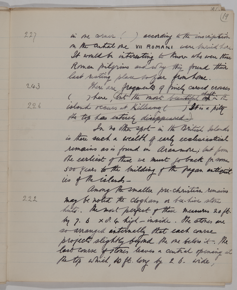 19
221 in one corner ( ) according to the inscription
on the outside are VII ROMANI were buried here.
It would be interesting to know who were these
Roman pilgrims and why they found their
last resting place so far from home
243 Here are fragments of finely carved crosses
( ) here, but the most beautiful in the
226 islands comes at Kilbrennan ( ) It is a pity
the top has entirely disappeared
In no other spot in the British Islands
is there such a wealth of early ecclesiastical
remains as is found in Aranmore, but for
the earliest of these we must go back for over
500 years to the building of the Pagan antiquit
ies of the islands.
Among the smaller pre-christian remains
222 may be noted the cloghans or beehive stone
huts. The most perfect of these measures 20 ft
by 7.6 x 0.8 high inside. The stones are
so arranged internally that each course
projects slightly beyond the one below it. The
last course of stones leaves a central opening at
the top which, 20 ft long by 2.6 wide